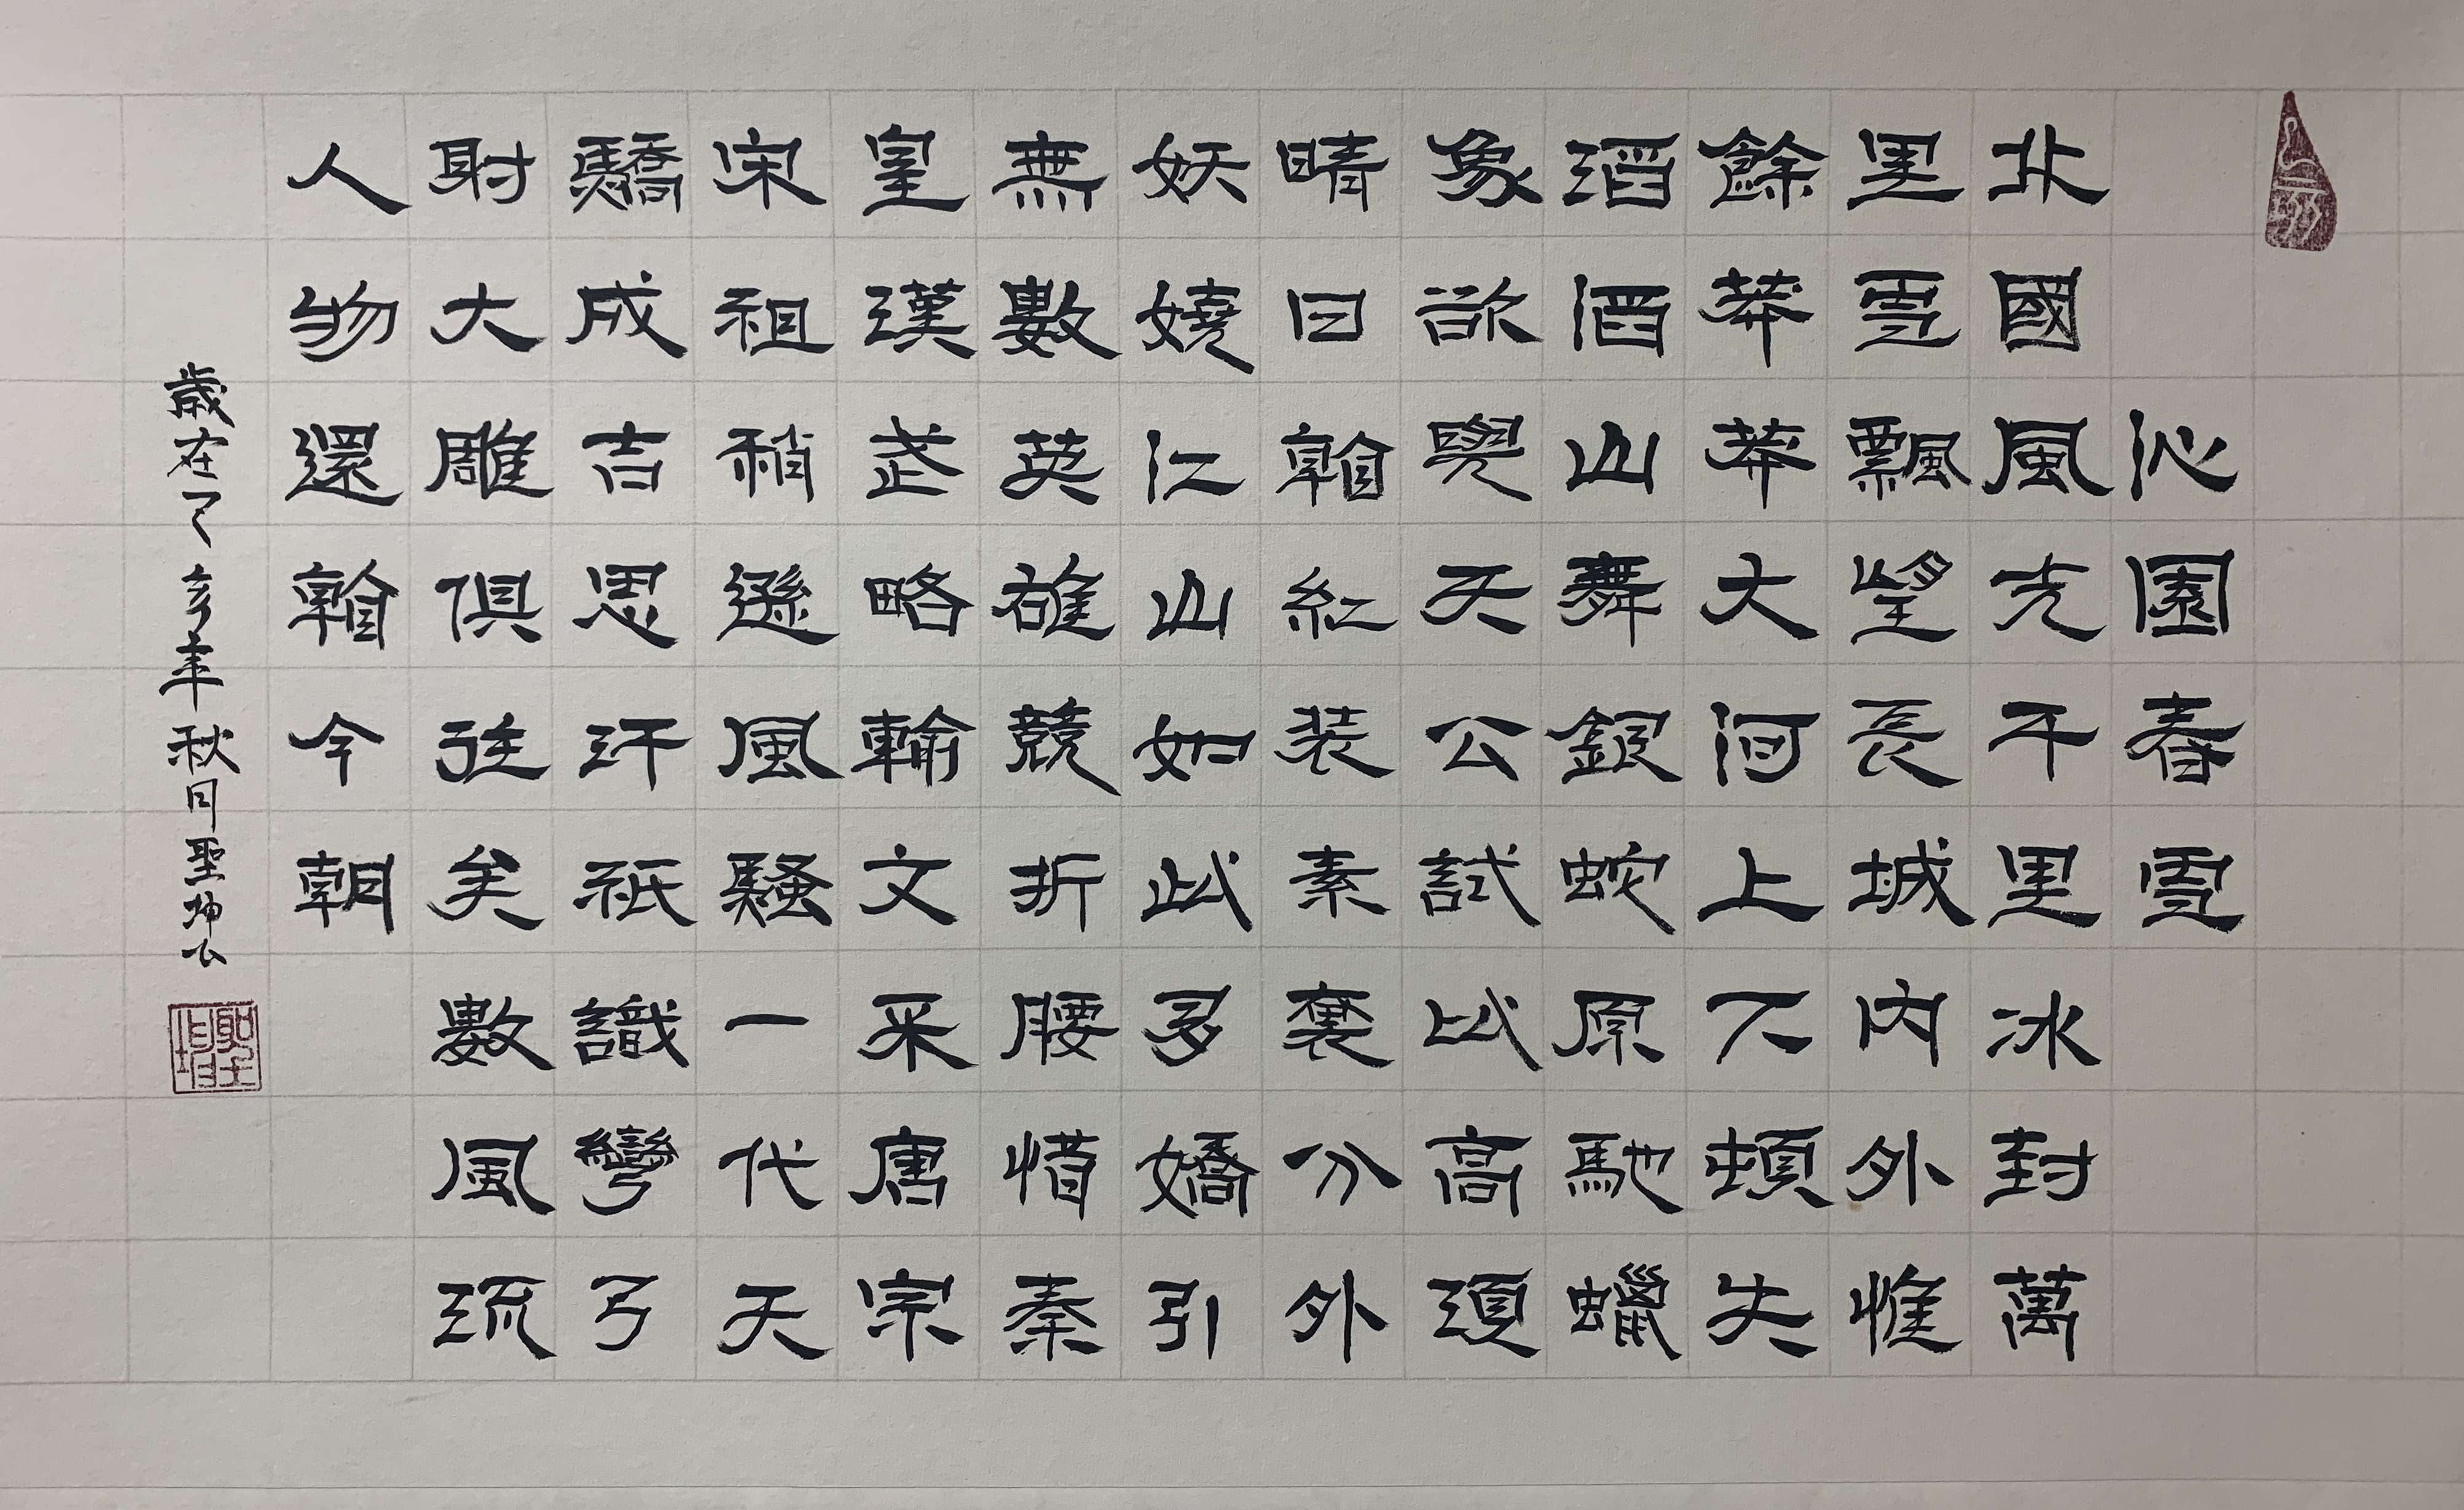 沁園春雪
北國風光千里冰封萬
里雪飄望長城內外惟
餘莽莽大河上下頓失
滔滔山舞銀蛇原馳蠟
象欲與天公試比高須
晴日看紅装素裹分外
妖嬈江山如此多嬌引
無數英雄競折腰惜秦
皇漢武略輸文采唐宗
宋祖稍遜風騷一代天
驕成吉思汗祇識彎弓
射大雕俱往矣數風流
人物還看今朝
歲在丁亥年秋月聖坤